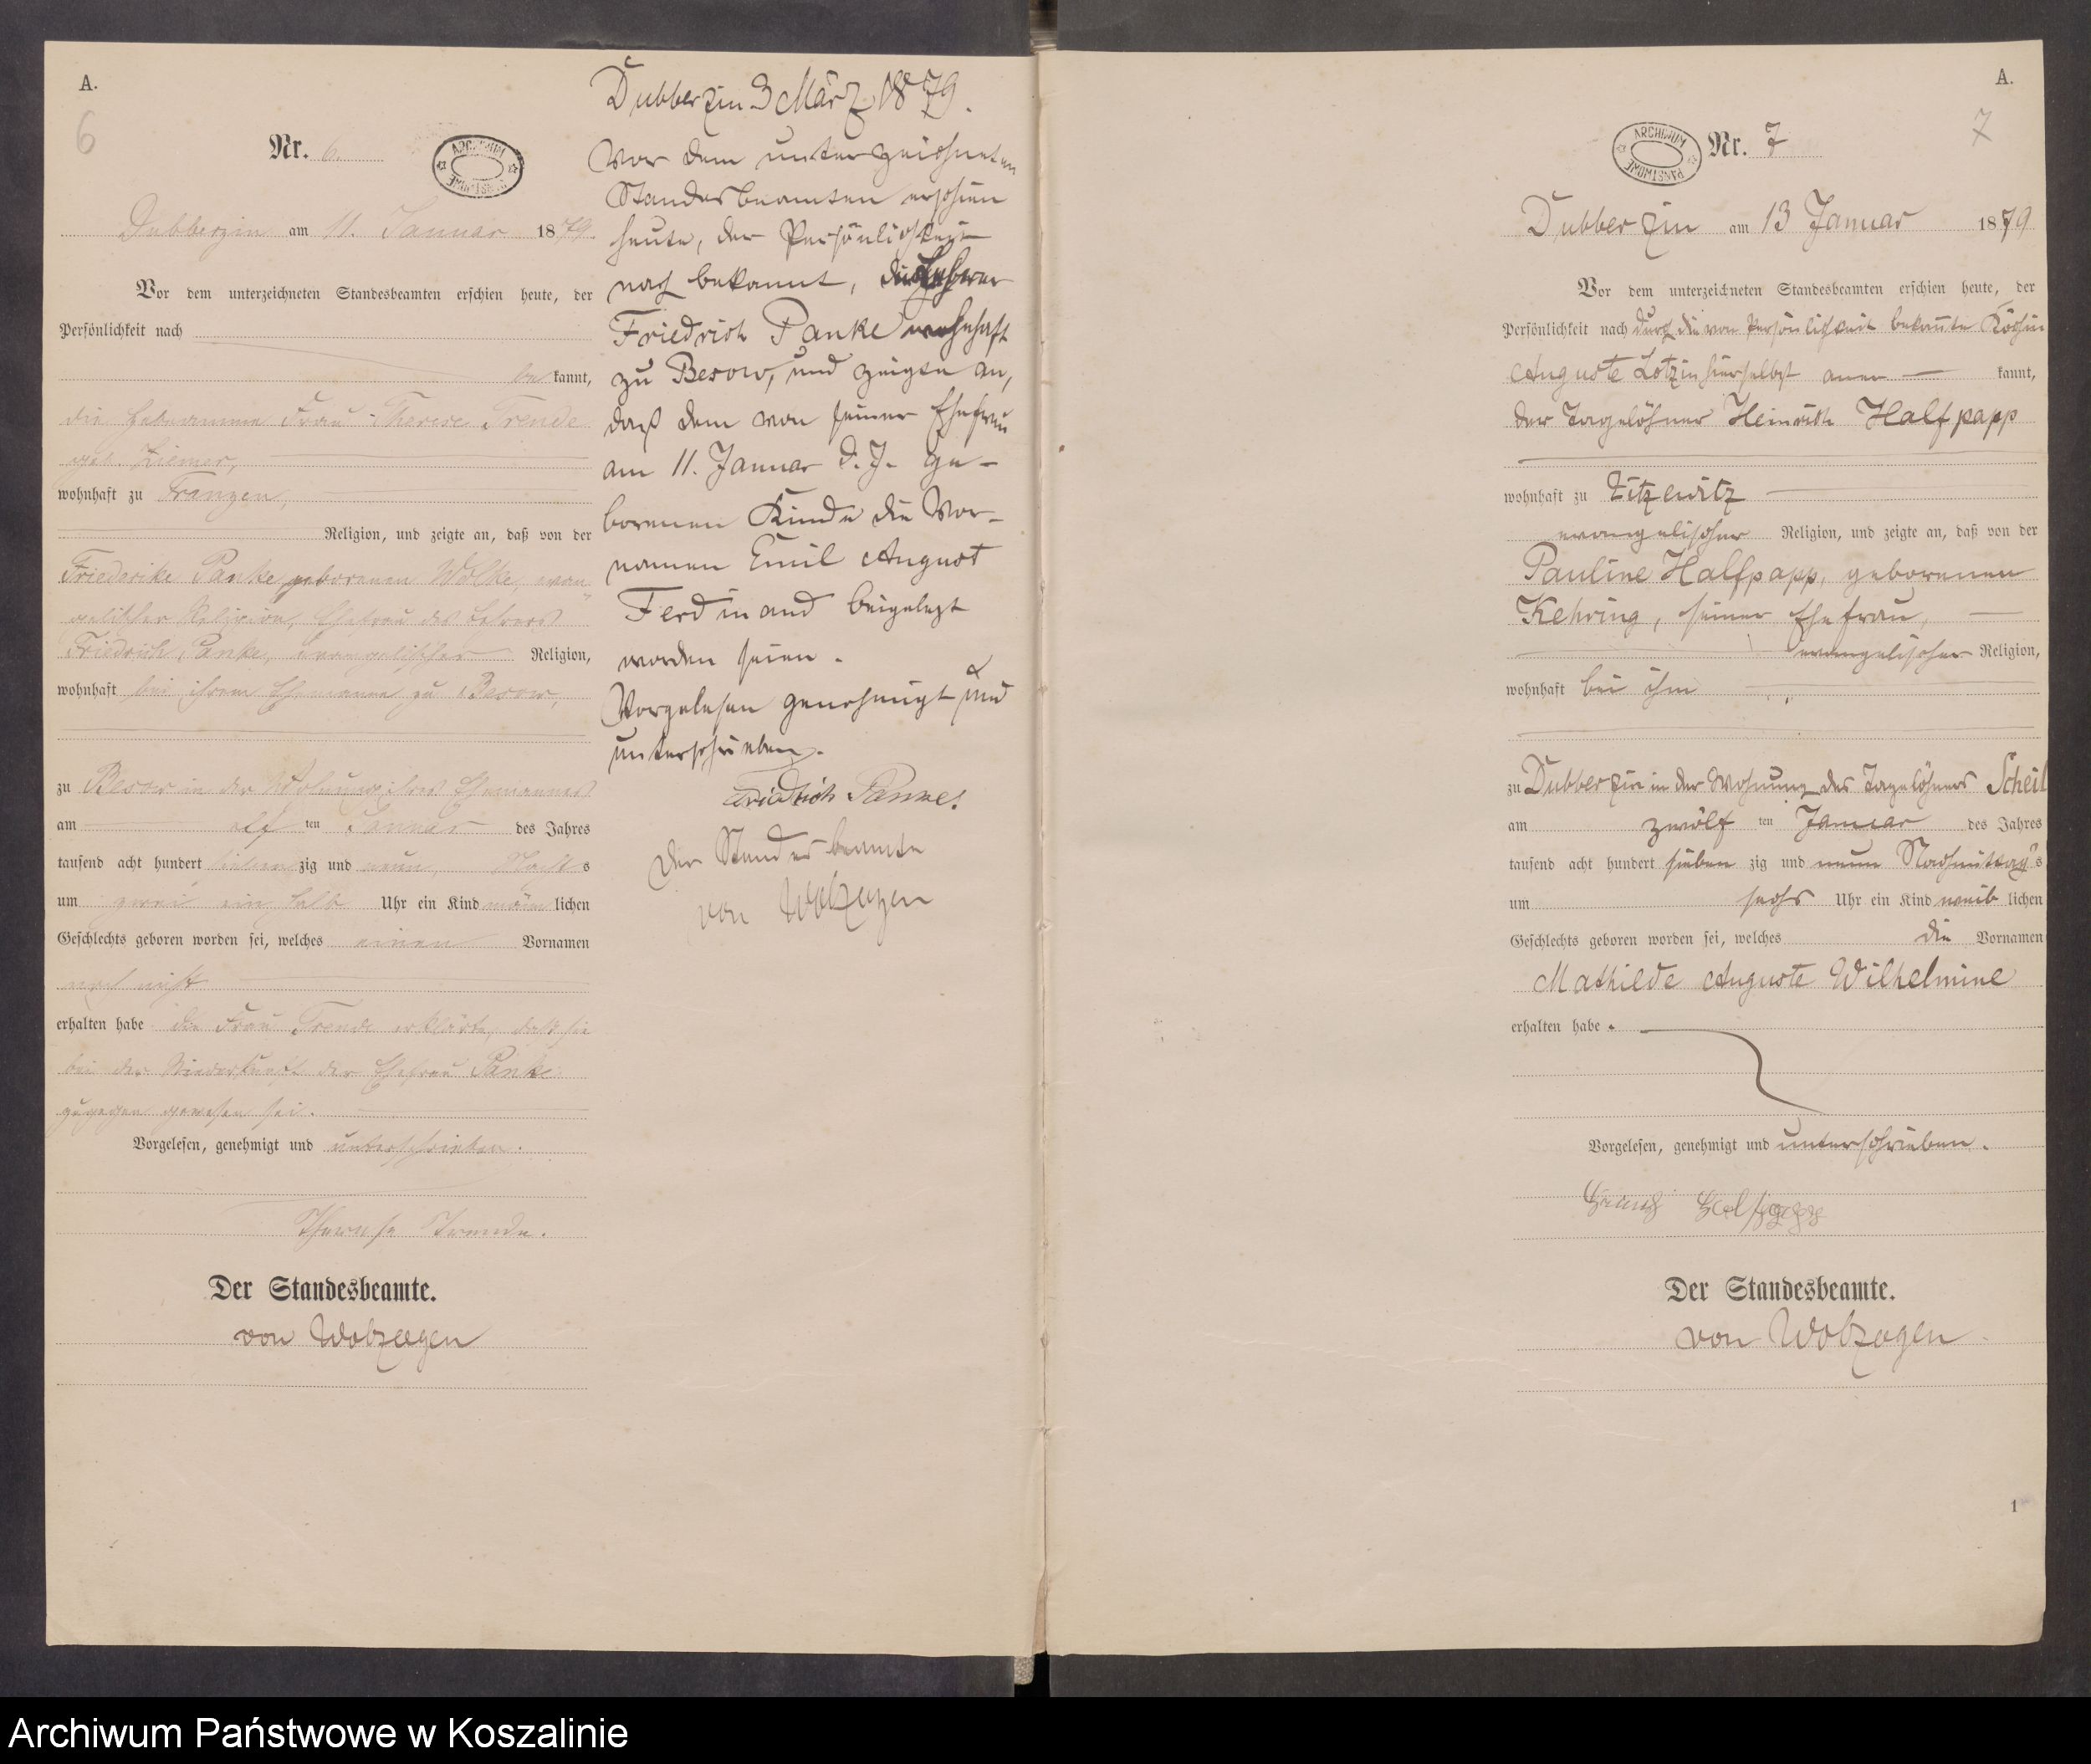 A.
6
Nr. 6.
ARCHIWUM PAŃSTWOWE
Dubberzin am 11. Januar 1879.
Vor dem unterzeichneten Standesbeamten erschien heute, der
Persönlichkeit nach
be kannt,
die Hebeamme Frau Therese Trende
geb. Ziemer,
wohnhaft zu Franzen,
Religion, und zeigte an, daß von der
Friederike Panke geborenen Wolke, evan-
gelischer Religion, Ehefrau des Lehrers
Friedrich Panke, evangelischer Religion,
wohnhaft bei ihrem Ehemanne zu Besow,
zu Besow in der Wohnung ihres Ehemannes
am elf ten Januar des Jahres
tausend acht hundert sieben zig und neun, Nacht s
um zwei ein halb Uhr ein Kind männ lichen
Geschlechts geboren worden sei, welches einen Vornamen
noch nicht
erhalten habe die Frau Trende erklärte, daß sie
bei der Niederkunft der Ehefrau Panke
zugegen gewesen sei.
Vorgelesen, genehmigt und unterschrieben.
Therese Trende.
Der Standesbeamte.
von Wobzagen
Dubberzin 3 März 1879.
Vor dem unterzeichneten
Standesbeamten erschien
heute, der Persönlichkeit
nach bekannt, der Lehrer
Friedrich Panke wohnhaft
zu Besow, und zeigte an,
daß dem von seiner Ehefrau
am 11. Januar d. J. ge-
borenen Kinde die Vor-
namen Emil August
Ferdinand beigelegt
worden seien.
Vorgelesen genehmigt und
unterschrieben.
Friedrich Panke.
Der Standesbeamte
von Wobzagen
A.
7
ARCHIWUM PAŃSTWOWE
Nr. 7
Dubberzin am 13 Januar 1879
Vor dem unterzeichneten Standesbeamten erschien heute, der
Persönlichkeit nach durch die von Persönlichkeit bekannte Köchin
Auguste Lotzin hierselbst aner kannt,
der Tagelöhner Heinrich Halfpapp
wohnhaft zu Zitzewitz
evangelischer Religion, und zeigte an, daß von der
Pauline Halfpapp, geborenen
Kehring, seiner Ehefrau,
evangelischer Religion,
wohnhaft bei ihm
zu Dubberzin in der Wohnung des Tagelöhners Scheil
am zwölf ten Januar des Jahres
tausend acht hundert sieben zig und neun Nachmittag s
um sechs Uhr ein Kind weib lichen
Geschlechts geboren worden sei, welches die Vornamen
Mathilde Auguste Wilhelmine
erhalten habe.
Vorgelesen, genehmigt und unterschrieben.
Halfpapp
Der Standesbeamte.
von Wobzagen
1
Archiwum Państwowe w Koszalinie